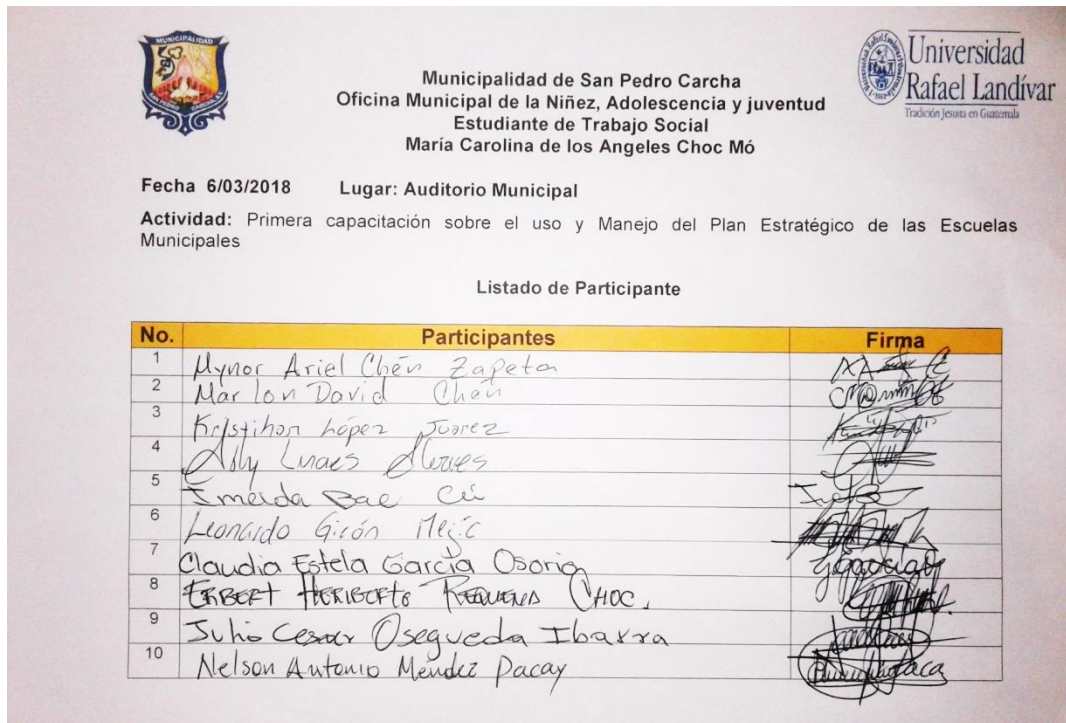 MUNICIPALIDAD
Universidad
Rafael Landívar
Tradición Jesuita en Guatemala
Municipalidad de San Pedro Carcha
Oficina Municipal de la Niñez, Adolescencia y juventud
Estudiante de Trabajo Social
María Carolina de los Angeles Choc Mó
Fecha 6/03/2018 Lugar: Auditorio Municipal
Actividad: Primera capacitación sobre el uso y Manejo del Plan Estratégico de las Escuelas
Municipales
Listado de Participante
No. Participantes Firma
1 Mynor Ariel Chén Zapeta
2 Marlon David Chén
3 López Juarez
4
5 Imelda Bae Cú
6 Leonardo Girón
7 Claudia Estela García Osorio
8 ERBERT HERIBERTO REQUENA CHOC.
9 Julio Cesar Osegueda Ibarra
10 Nelson Antonio Méndez Pacay